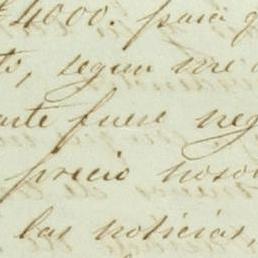 4000. para
segun me
fuese neg
precio noso
las noticias,